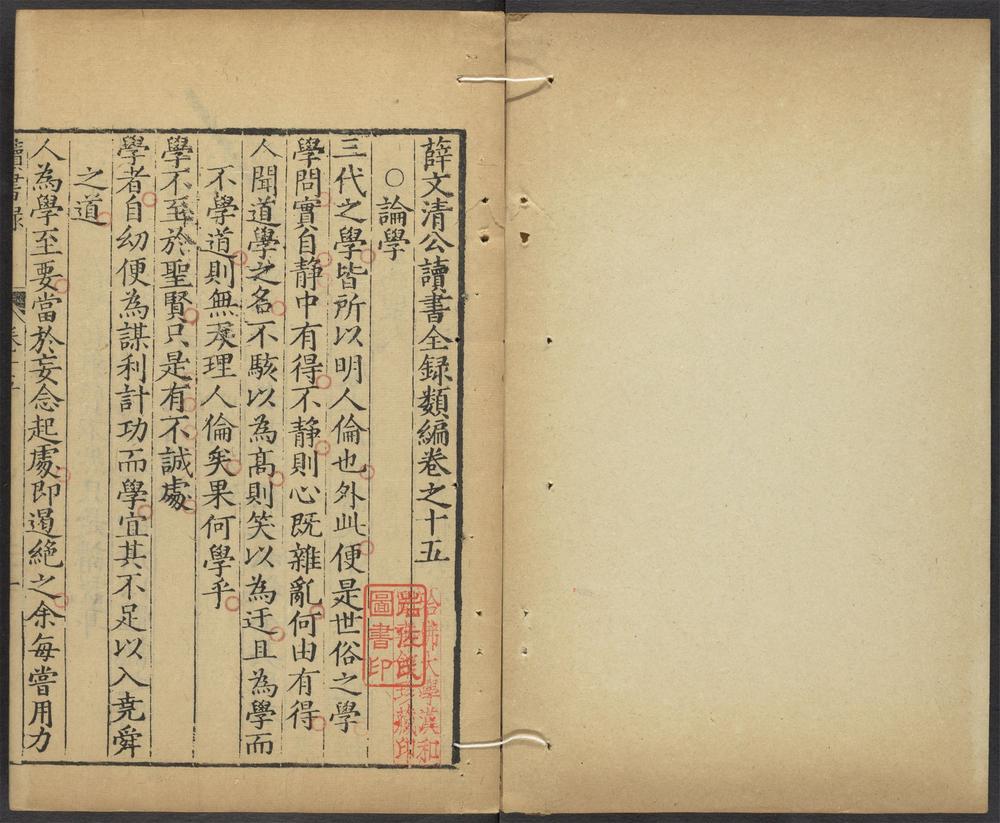 薛文清公讀書全録類編卷之十五
○論學
三代之學皆所以明人倫也外此便是世俗之學
學問實自静中有得不静則心既雜亂何由有得
人聞道學之名不駭以為髙則笑以為迂且為學而
不學道則無天理人倫矣果何學乎
學不至於聖賢只是有不誠處
學者自幼便為謀利計功而學宜其不足以入堯舜
之道
人為學至要當於妄念起處即遏絶之余每嘗用力
讀書録
哈佛大學漢和
圖書館珍藏印
圖書印